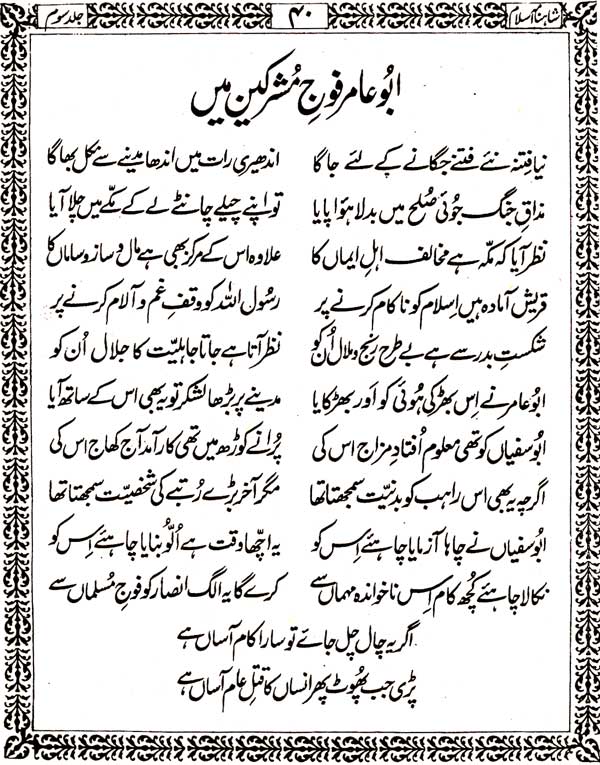 شاہنامہ اسلام ۴۰ جلد سوم
ابُو عامر فوجِ مُشرکین میں
نیا فتنہ نئے فتنے جگانے کے لئے جاگا اندھیری رات میں اندھا مدینے سے نکل بھاگا
مذاقِ جنگ جُوئی صُلح میں بدلا ہوا پایا تو اپنے چیلے چانٹے لے کے مکّے میں چلا آیا
نظر آیا کہ مکّہ ہے مخالف اہلِ ایماں کا علاوہ اس کے مرکز بھی ہے مال و ساز و ساماں کا
قریش آمادہ ہیں اِسلام کو ناکام کرنے پر رسُول اللہ کو وقفِ غم و آلام کرنے پر
شکستِ بدر سے ہے بے طرح رنج و ملال اُن کو نظر آتا ہے جاتا جاہلیّت کا جلال اُن کو
ابُو عامر نے اِس بھڑکی ہُوئی کو اَور بھڑکایا مدینے پر بڑھا لشکر تو یہ بھی اس کے ساتھ آیا
ابُو سفیاں کو تھی معلوم اُفتادِ مزاج اس کی پُرانے کوڑھ میں تھی کار آمد آج کھاج اس کی
اگرچہ یہ بھی اس راہب کو بدنیّت سمجھتا تھا مگر آخر بڑے رُتبے کی شخصیّت سمجھتا تھا
ابُو سفیاں نے چاہا آزمایا چاہئے اِس کو یہ اچھا وقت ہے اُلّو بنایا چاہئے اِس کو
نکالا چاہئے کُچھ کام اِس ناخواندہ مہماں سے کرے گا یہ الگ انصار کو فوجِ مُسلماں سے
اگر یہ چال چل جائے تو سارا کام آساں ہے
پڑی جب پھُوٹ پھر انساں کا قتلِ عام آساں ہے